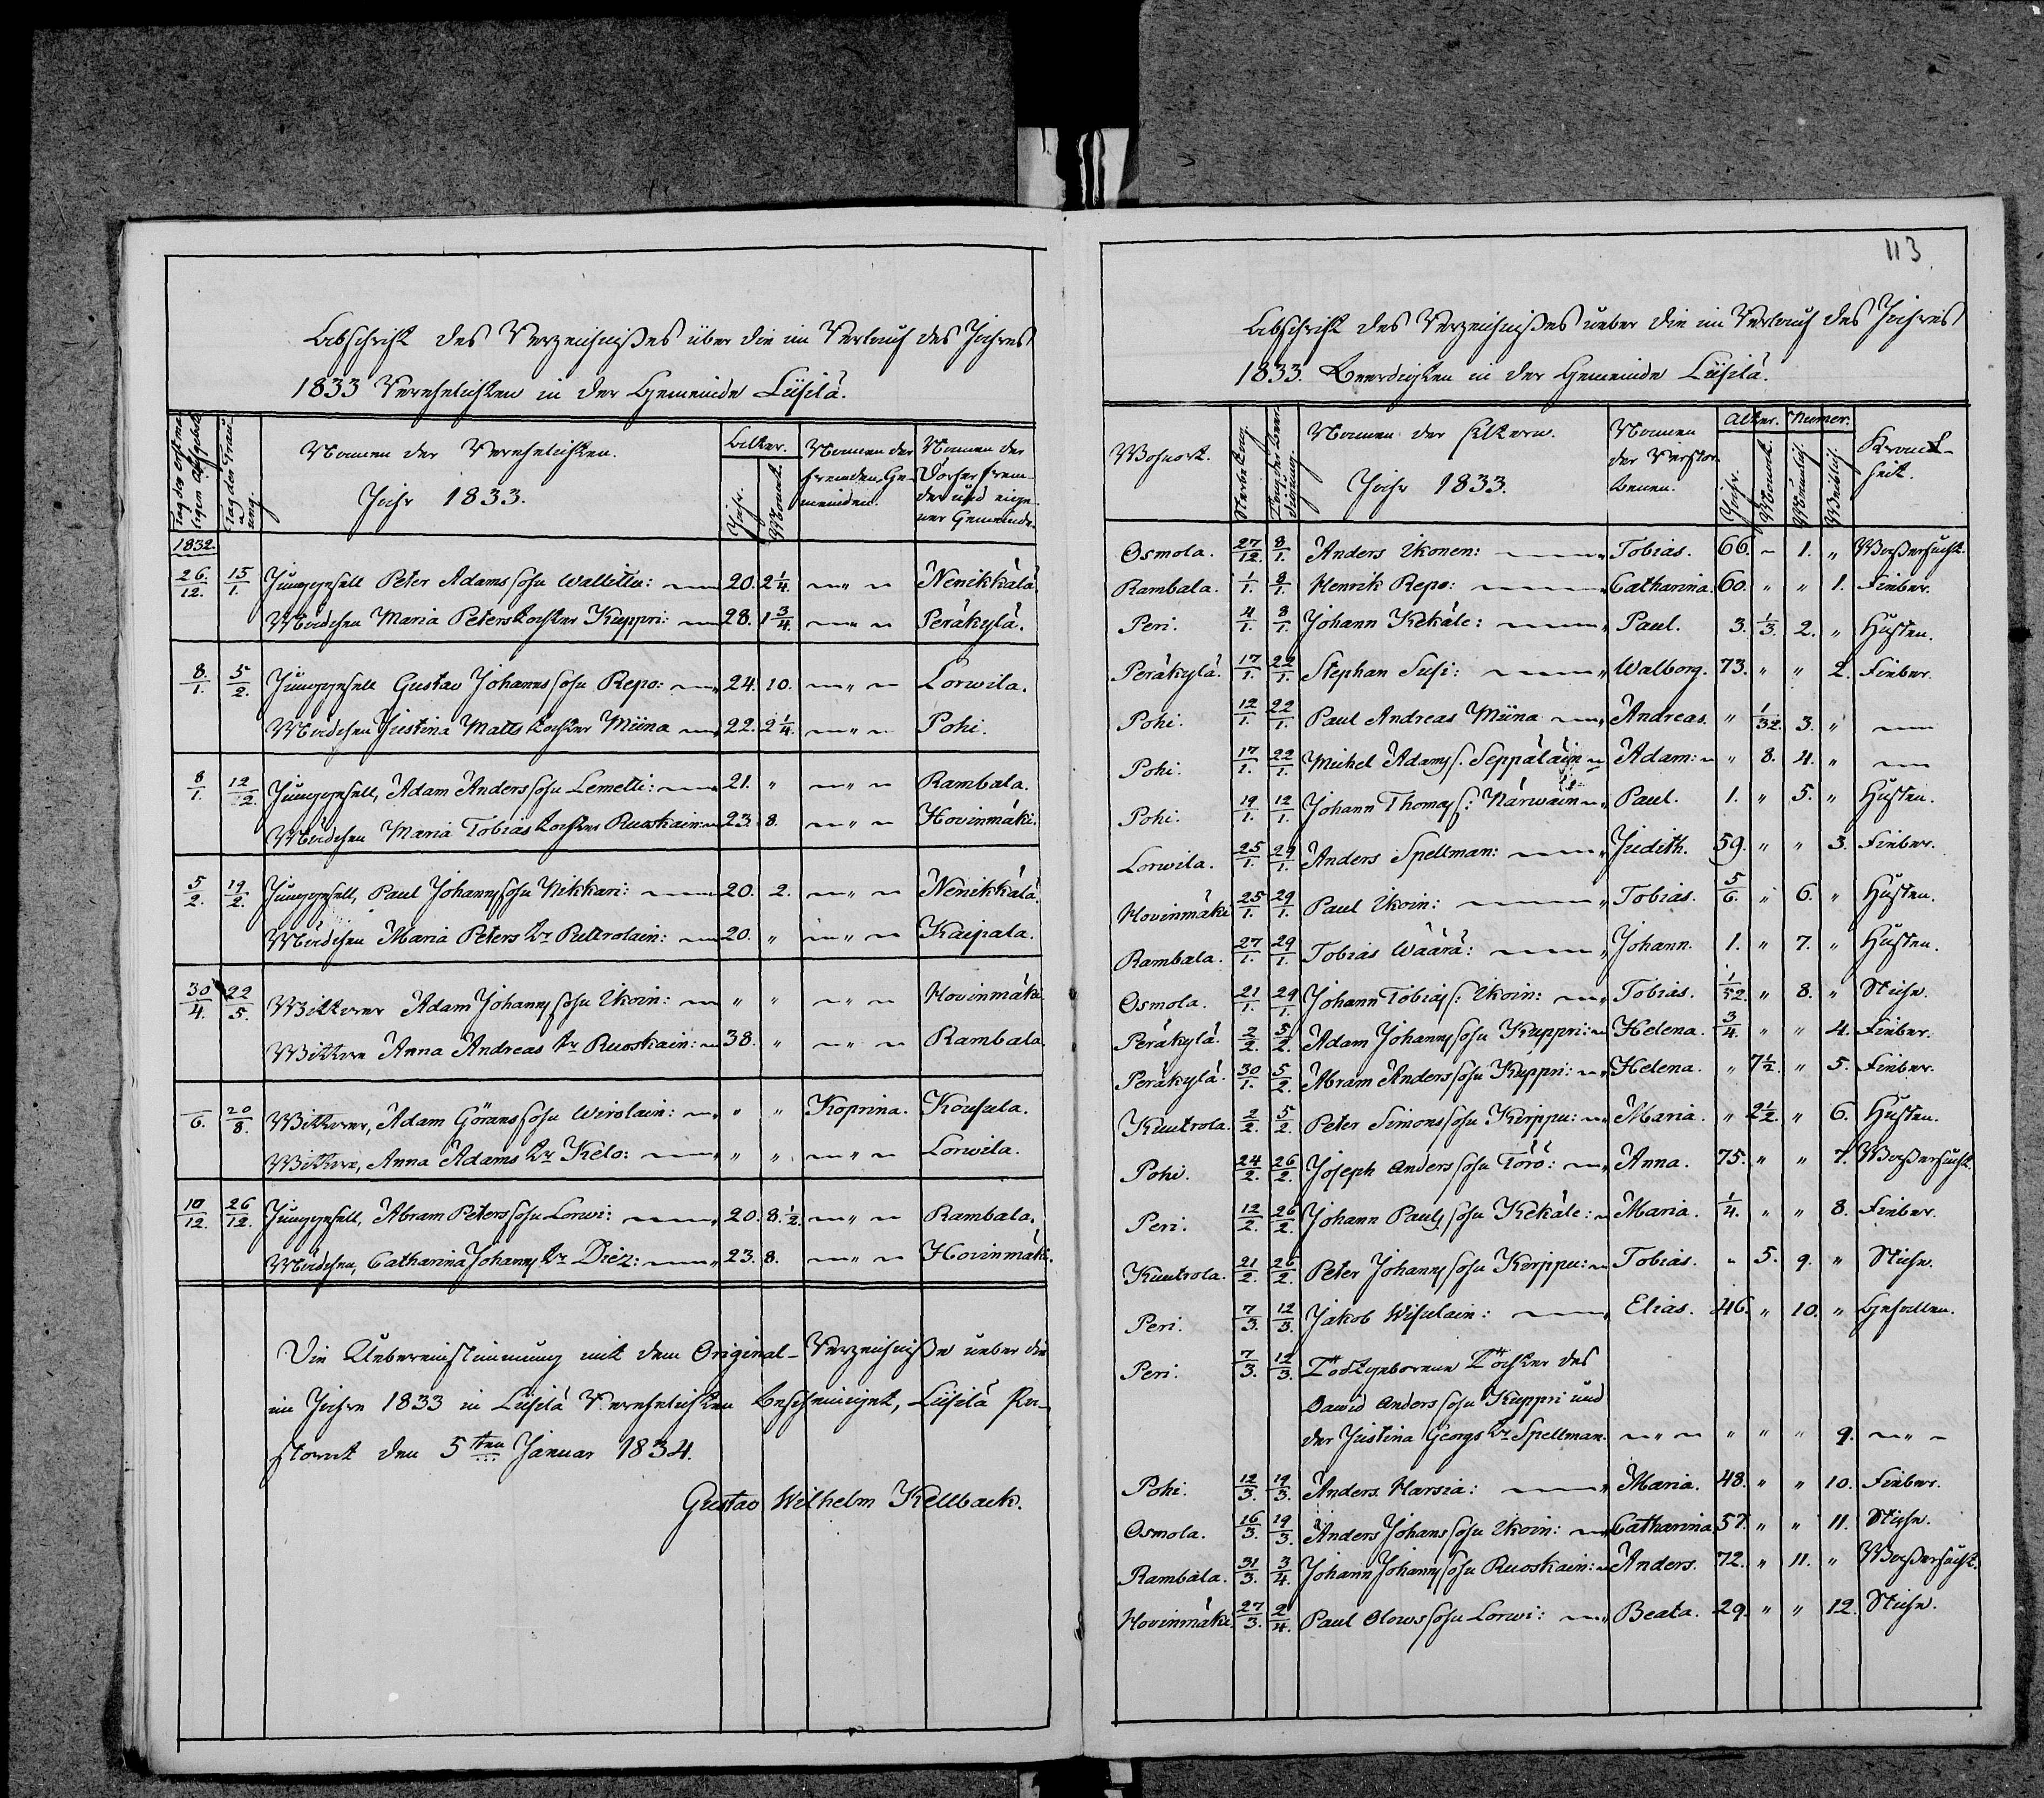 Abschrift des Verzeichnißes über die im Verlauf des Jahres
1833 Verehelichten in der Gemeinde Liisilä.
Tag der erstmaligen Aufgebots
Tag der Trauung.
Namen der Verehelichten.
Jahr 1833.
Alter.
Jahr.
Monat.
Namen der fremden Gemeinden.
Namen der Dörfer fremder und eigener Gemeinde.
1832.
26/12. 15/1. Junggesell Peter Adams sohn Wallittu: 20. 2 1/4. „ Nenikkälä.
Mädchen Maria Peters tochter Kuppri: 28. 1 3/4. „ Peräkylä.
8/1. 5/2. Junggesell Gustav Johanns sohn Repo: 24. 10. „ Lorwila.
Mädchen Justina Matts tochter Miina 22. 2 1/4. „ Pohi.
8/1. 12/2. Junggesell, Adam Anders sohn Lemetti: 21. „ „ Rambala.
Mädchen Maria Tobias tochter Ruoskain: 23. 8. „ Hovinmäki.
5/2. 19/2. Junggesell, Paul Johanns sohn Nikkari: 20. 2. „ Nenikkälä.
Mädchen Maria Peters tr Puttrolain: 20. „ „ Kaipala.
30/4. 22/5. Wittwer Adam Johanns sohn Ikoin: „ „ „ Hovinmäki.
Wittwe Anna Andreas tr Ruoskain: 38. „ „ Rambala.
/6. 20/8. Wittwer, Adam Görans sohn Wirolain: „ „ Koprina. Koufula.
Wittwe, Anna Adams tr Kelo: „ „ „ Lorwila.
10/12. 26/12. Junggesell, Abram Peters sohn Lorwi: 20. 8. 1/2. „ Rambala.
Mädchen, Catharina Johanns tr Diez: 23. 8. „ Hovinmäki.
Die Uebereinstimmung mit dem Original-Verzeichniße ueber die
im Jahre 1833 in Liisilä Verehelichten bescheiniget, Liisilä Pa-
storat den 5ten Januar 1834.
Gustav Wilhelm Kellback.
113.
Abschrift des Verzeichnißes ueber die im Verlauf des Jahres
1833. Beerdigten in der Gemeinde Liisilä.
Wohnort.
Sterbetag.
Tag der Beerdigung.
Namen der Eltern.
Jahr 1833.
Namen der Verstorbenen.
Alter.
Jahr.
Monat.
Numer.
Männlich.
Weiblich.
Krankheit.
Osmola. 27/12. 8/1. Anders Ikonen: „ Tobias. 66. „ 1. „ Waßersucht.
Rambala. 1/1. 8/1. Henrik Repo: „ Catharina. 60. „ „ 1. Fieber.
Peri. 4/1. 8/1. Johann Kekäle: „ Paul. 3. 1/3. 2. „ Husten.
Peräkylä. 17/1. 22/1. Stephan Susi: „ Walborg. 73. „ „ 2. Fieber.
Pohi. 12/1. 22/1. Paul Andreas Miina „ Andreas. „ 1/32. 3. „
Pohi. 17/1. 22/1. Michel Adams s. Seppäläin „ Adam: „ 8. 4. „
Pohi. 19/1. 12/1. Johann Thomas s: Närwäin „ Paul. 1. „ 5. „ Husten.
Lorwila. 25/1. 29/1. Anders Spellman: „ Judith. 59. „ „ 3. Fieber.
Hovinmäki 25/1. 29/1. Paul Ikoin: „ Tobias. 5/6. „ 6. „ Husten.
Rambala. 27/1. 29/1. Tobias Wäärä: „ Johann. 1. „ 7. „ Husten.
Osmola. 21/1. 29/1. Johann Tobias s: Ikoin: „ Tobias. 1/52. „ 8. „ Stiche.
Peräkylä. 2/2. 5/2. Adam Johanns sohn Kuppri: „ Helena. 3/4. „ „ 4. Fieber.
Peräkylä. 30/1. 5/2. Abram Anders sohn Kuppri: „ Helena. „ 7 1/2. „ 5. Fieber.
Kuutrola. 2/2. 5/2. Peter Simons sohn Kirppu: „ Maria. „ 2 1/2. „ 6. Husten.
Pohi. 24/2. 26/2. Joseph Anders sohn Törö: „ Anna. 75. „ „ 7. Waßersucht.
Peri. 12/2. 26/2. Johann Pauls sohn Kekäle: „ Maria. 1/4. „ „ 8. Fieber.
Kuutrola. 21/2. 26/2. Peter Johanns sohn Kirppu: „ Tobias. „ 5. 9. „ Stiche.
Peri. 7/3. 12/3. Jakob Wisulain: „ Elias. 46. „ 10. „ Gefallen.
Peri. 7/3. 12/3. Todtgeborene Tochter des
David Anders sohn Kuppri und
der Justina Georgs tr Spellman. „ „ „ „ 9. „
Pohi. 12/3. 19/3. Anders Harsia: „ Maria. 48. „ „ 10. Fieber.
Osmola. 16/3. 19/3. Anders Johans sohn Ikoin: „ Catharina 57. „ „ 11. Stiche.
Rambala. 31/3. 3/4. Johann Johanns sohn Ruoskain: „ Anders. 72. „ 11. „ Waßersucht.
Hovinmäki. 27/3. 2/4. Paul Olows sohn Lorwi: „ Beata. 29. „ „ 12. Stiche.